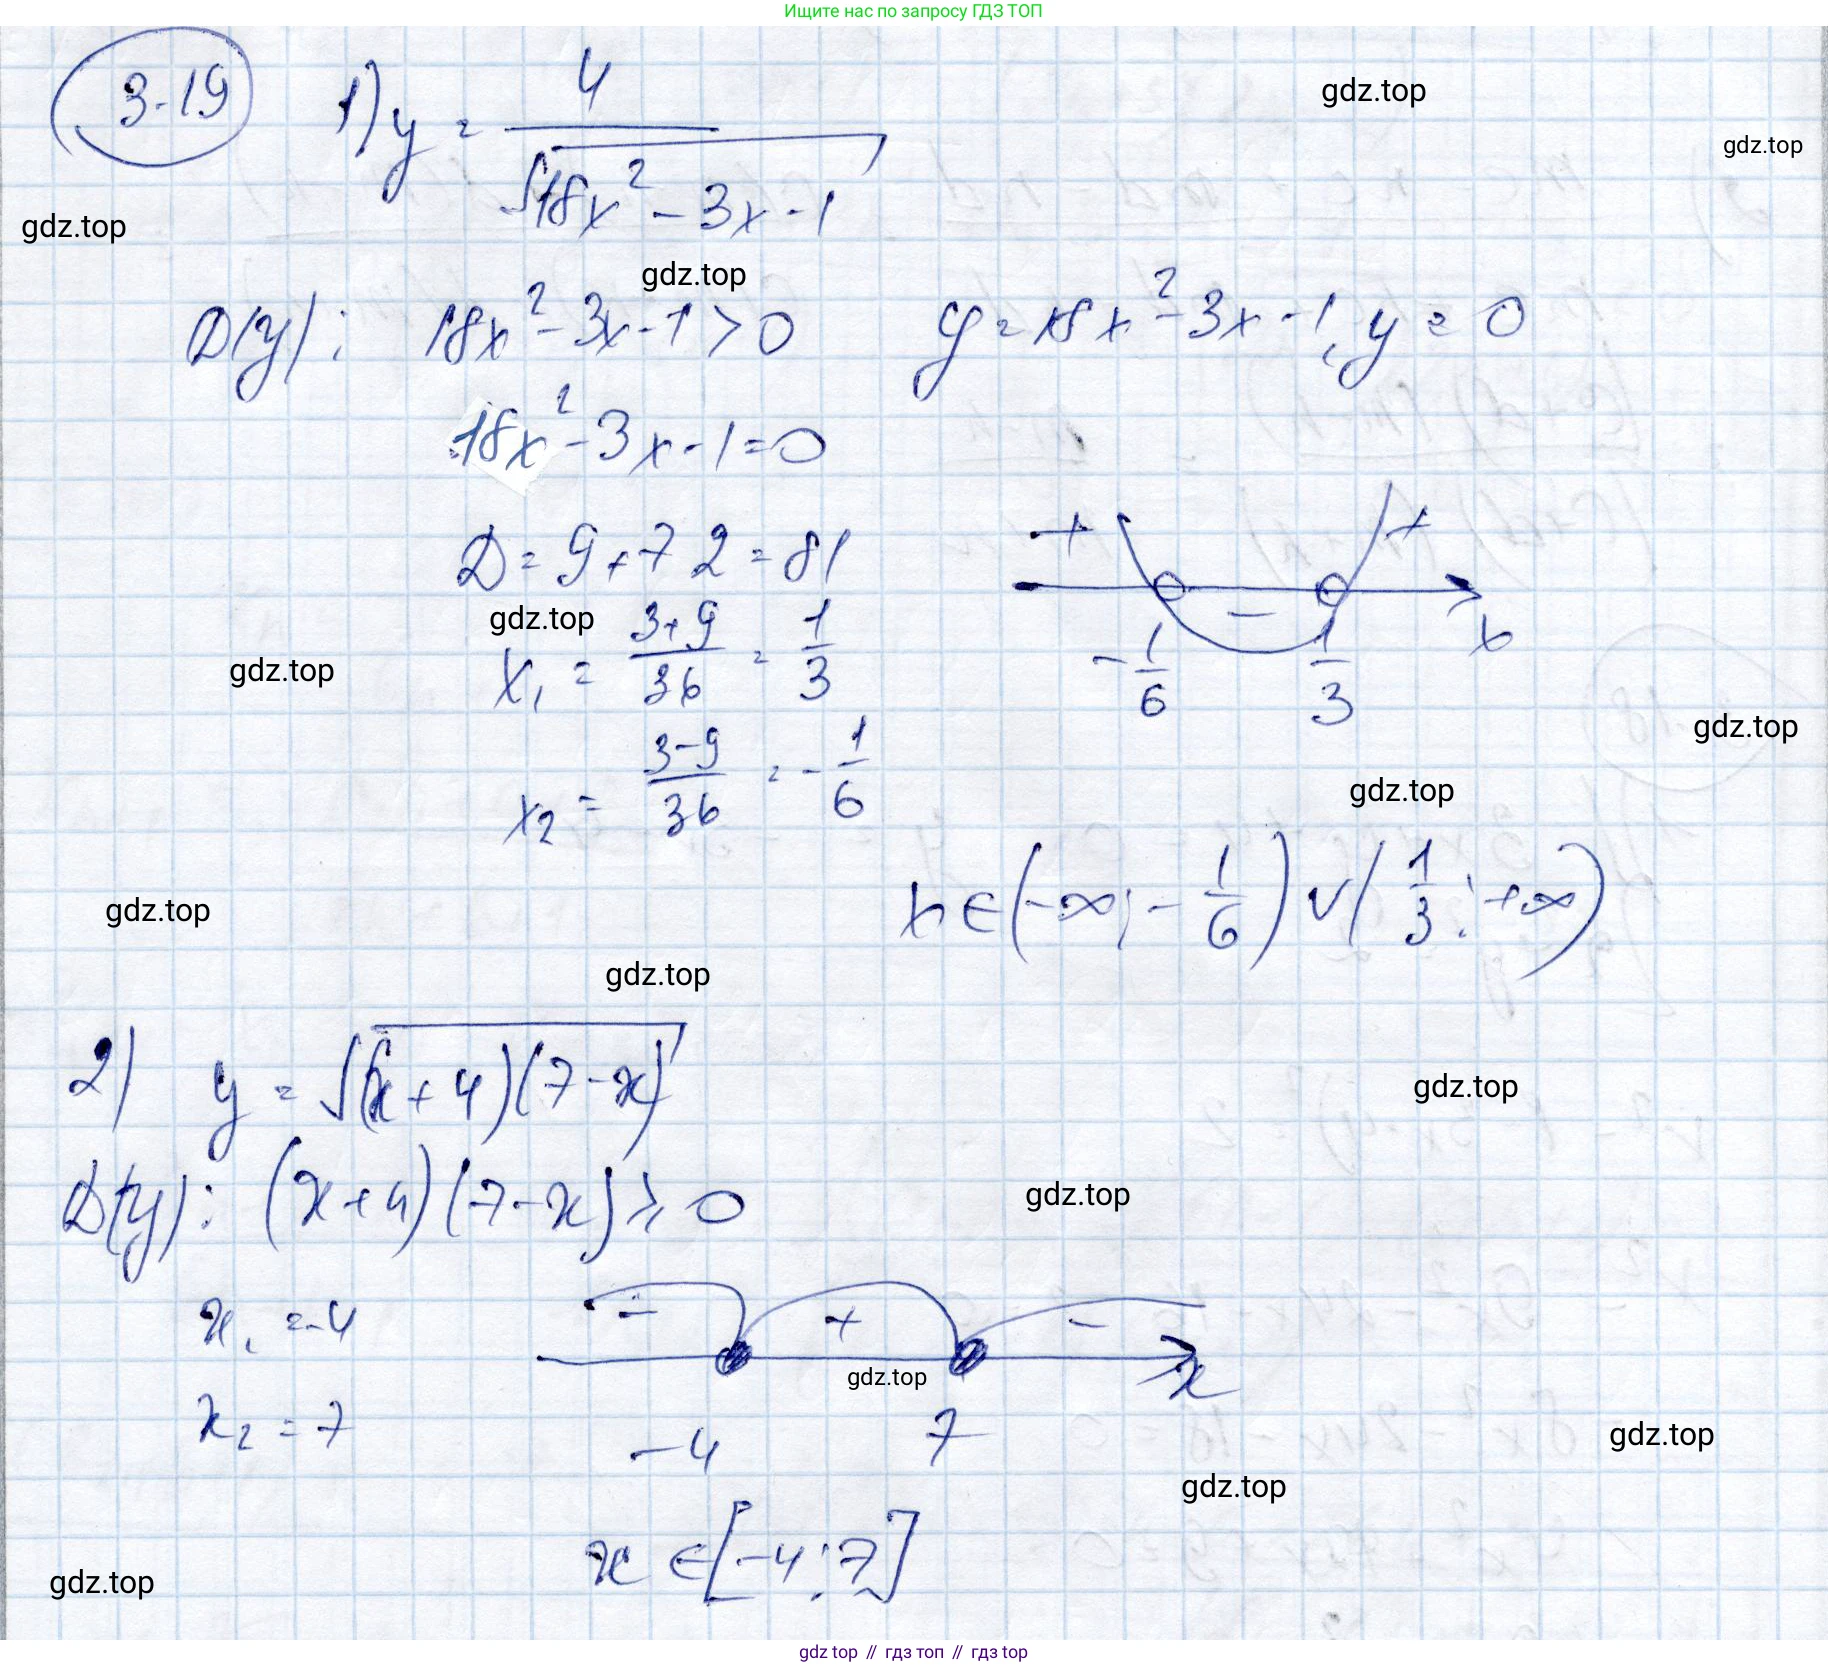 Ищите нас по запросу ГДЗ ТОП
3.19 1) y = 4 / √(18x² - 3x - 1)
gdz.top
gdz.top
gdz.top
gdz.top
D(y): 18x² - 3x - 1 > 0 y = 18x² - 3x - 1, y = 0
18x² - 3x - 1 = 0
D = 9 + 72 = 81
+ - + x
-1/6 1/3
gdz.top
x₁ = (3+9)/36 = 1/3
gdz.top
gdz.top
x₂ = (3-9)/36 = -1/6
gdz.top
x ∈ (-∞; -1/6) ∪ (1/3; +∞)
gdz.top
gdz.top
2) y = √((x+4)(7-x))
gdz.top
D(y): (x+4)(7-x) ≥ 0
gdz.top
x₁ = -4
- + - x
gdz.top
x₂ = 7
-4 7
gdz.top
gdz.top
x ∈ [-4; 7]
gdz.top
gdz top // гдз топ // гдз top